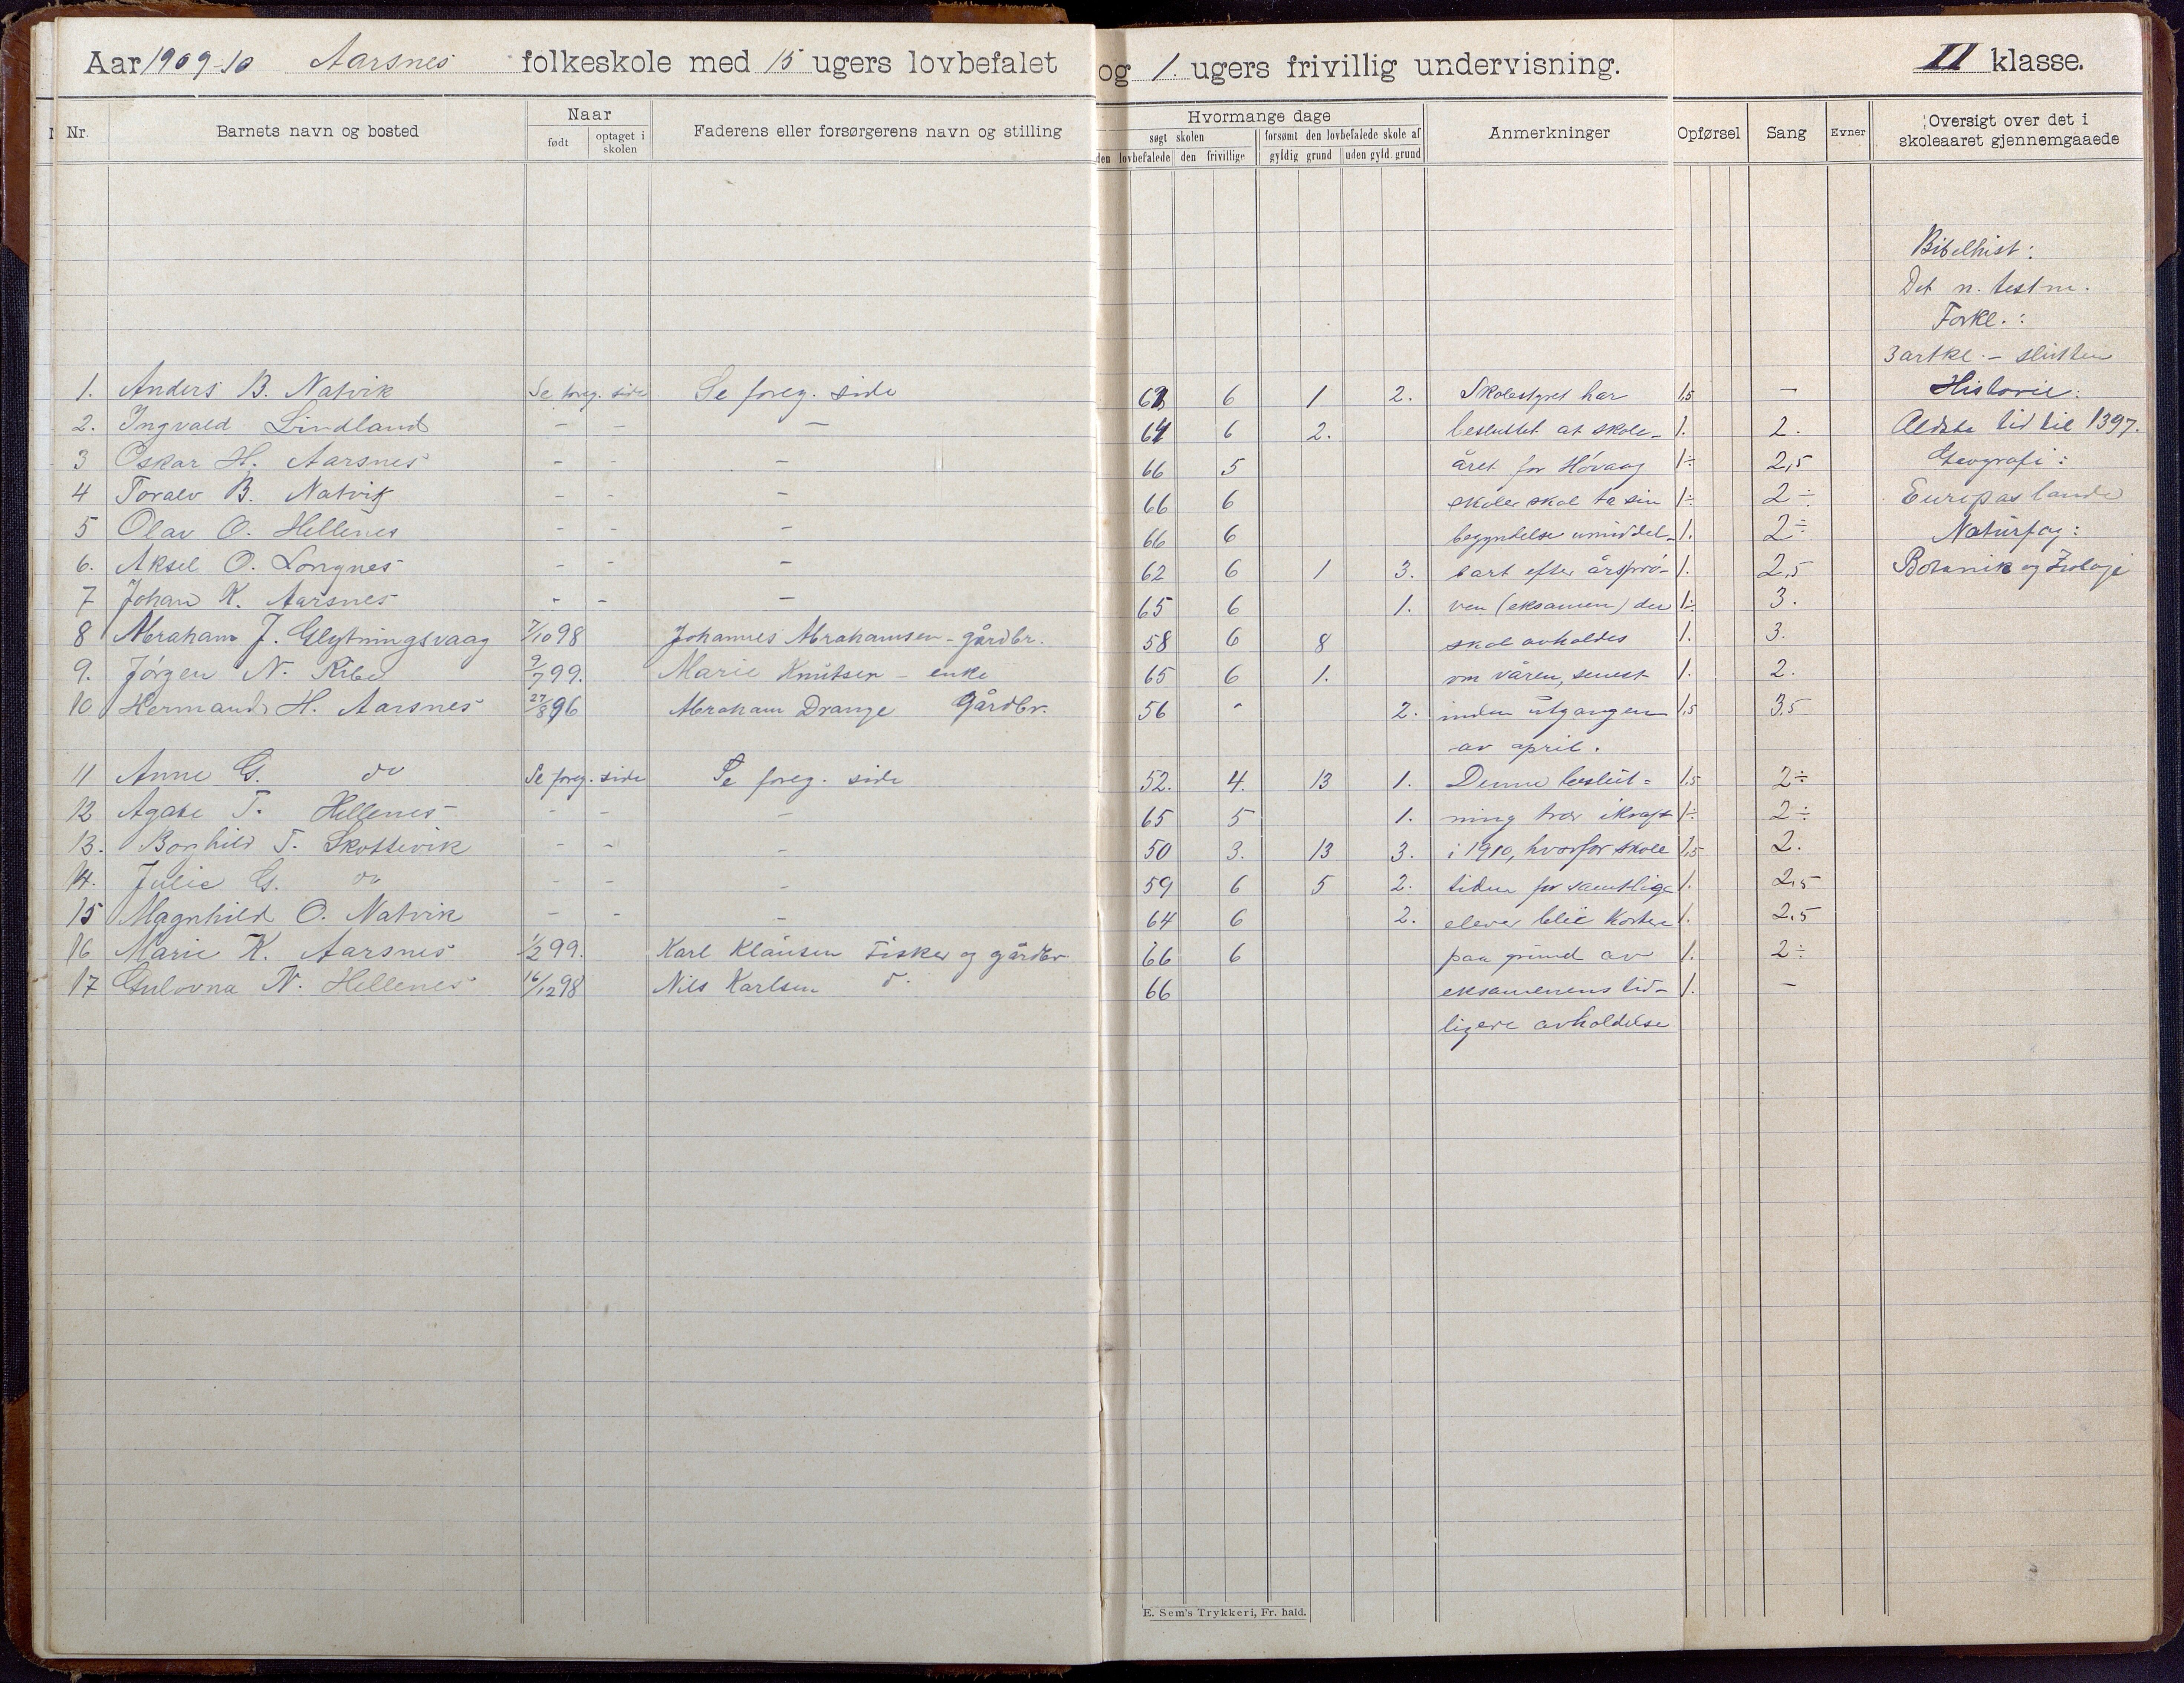 Aar 1909-10 Aarsnes folkeskole med 15 ugers lovbefalet og 1. ugers frivillig undervisning. II klasse.
Nr. Barnets navn og bosted Naar født optaget i skolen Faderens eller forsørgerens navn og stilling Hvormange dage søgt skolen den lovbefalede den frivillige forsømt den lovbefalede skole af gyldig grund uden gyld. grund Anmerkninger Opførsel Sang Evner Oversigt over det i skoleaaret gjennemgaaede
Bibelhist:
Det n. testm.
Forkl.:
3 artkl. - slutten
1. Anders B. Natvik Se foreg. side Se foreg. side 63 6 1 2. Skolestyret har 1,5 — Historie:
2. Ingvald Lindland – – – 64 6 2. besluttet at skole- 1. 2. Ældste tid til 1397.
3 Oskar H. Aarsnes – – – 66 5 året for Høvaag 1÷ 2,5 Geografi:
4 Toralv B. Natvik – – – 66 6 skoler skal ta sin 1÷ 2÷ Europas lande
5 Olav O. Hellenes – – – 66 6 begyndelse umiddel- 1. 2÷ Naturfag:
6. Aksel O. Longnes – – – 62 6 1 3. bart efter årsprø- 1. 2,5 Botanik og Zoologi
7 Johan K. Aarsnes – – – 65 6 1. ven (eksamen) der 1÷ 3.
8 Abraham J. Glytningsvaag 7/10 98 Johannes Abrahamsen - gårdbr. 58 6 8 skal avholdes 1. 3.
9. Jørgen N. Ribe 9/7 99. Marie Knutsen – enke 65 6 1. om våren, senest 1. 2.
10 Hermand H. Aarsnes 27/8 96 Abraham Drange Gårdbr. 56 - 2. inden utgangen 1,5 3,5
av april.
11 Anne G. do Se foreg. side Se foreg. side 52. 4. 13 1. Denne beslut= 1,5 2÷
12 Agate T. Hellenes – – – 65 5 1. ning trær ikraft 1÷ 2÷
13. Borghild T. Skottevik – – – 50 3. 13 3. i 1910, hvorfor skole 1,5 2.
14. Julie G. do – – – 59 6 5 2. tiden for samtlige 1. 2,5
15 Magnhild O. Natvik – – – 64 6 2. elever blir kortere 1. 2,5
16 Marie K. Aarsnes 1/2 99. Karl Klausen Fisker og gårdbr. 66 6 paa grund av 1. 2÷
17 Gulovna N. Hellenes 16/12 98 Nils Karlsen d. 66 eksamenens tid- 1. —
ligere avholdelse
E. Sem's Trykkeri, Fr. hald.